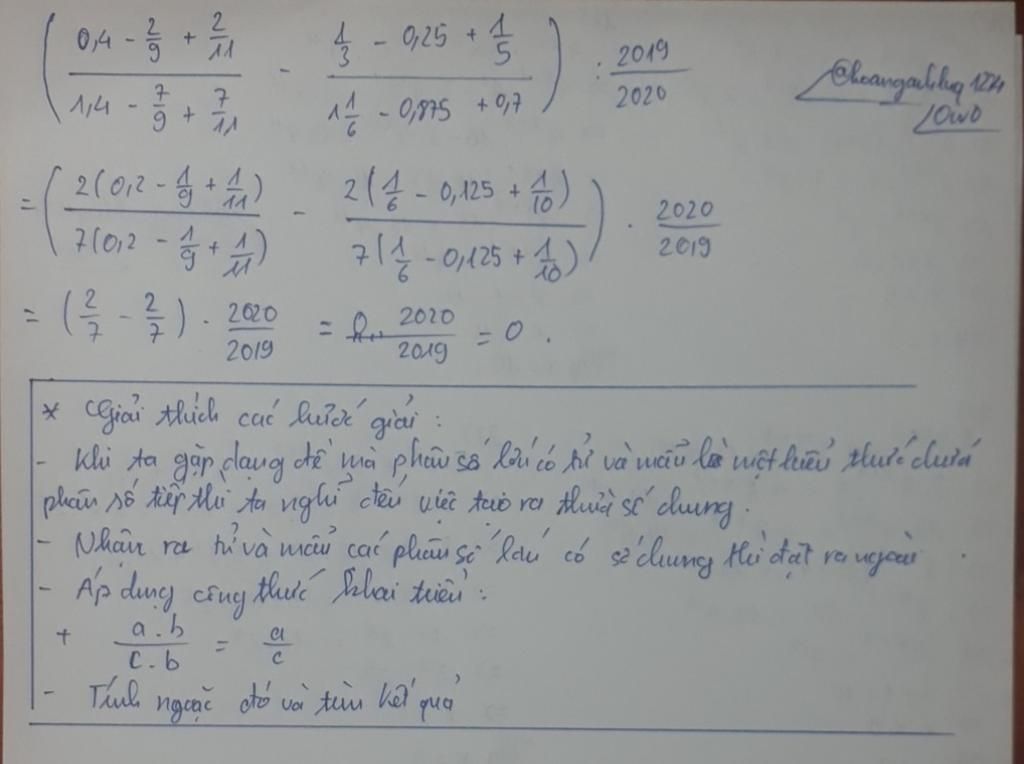 ( (0,4 - 2/9 + 2/11) / (1,4 - 7/9 + 7/11) - (1/3 - 0,25 + 1/5) / (1 1/6 - 0,875 + 0,7) ) : 2019/2020
= ( 2(0,2 - 1/9 + 1/11) / 7(0,2 - 1/9 + 1/11) - 2(1/6 - 0,125 + 1/10) / 7(1/6 - 0,125 + 1/10) ) . 2020/2019
= (2/7 - 2/7) . 2020/2019 = 0 . 2020/2019 = 0 .
* Giải thích các bước giải :
- Khi ta gặp dạng đề mà phân số lớn có tử và mẫu là một biểu thức chứa
phân số tiếp thì ta nghĩ đến việc tạo ra thừa số chung.
- Nhận ra tử và mẫu các phân số lớn có số chung thì đặt ra ngoài
- Áp dụng công thức khai triển :
+ a . b / c . b = a / c
- Tính ngoặc đó và tìm kết quả